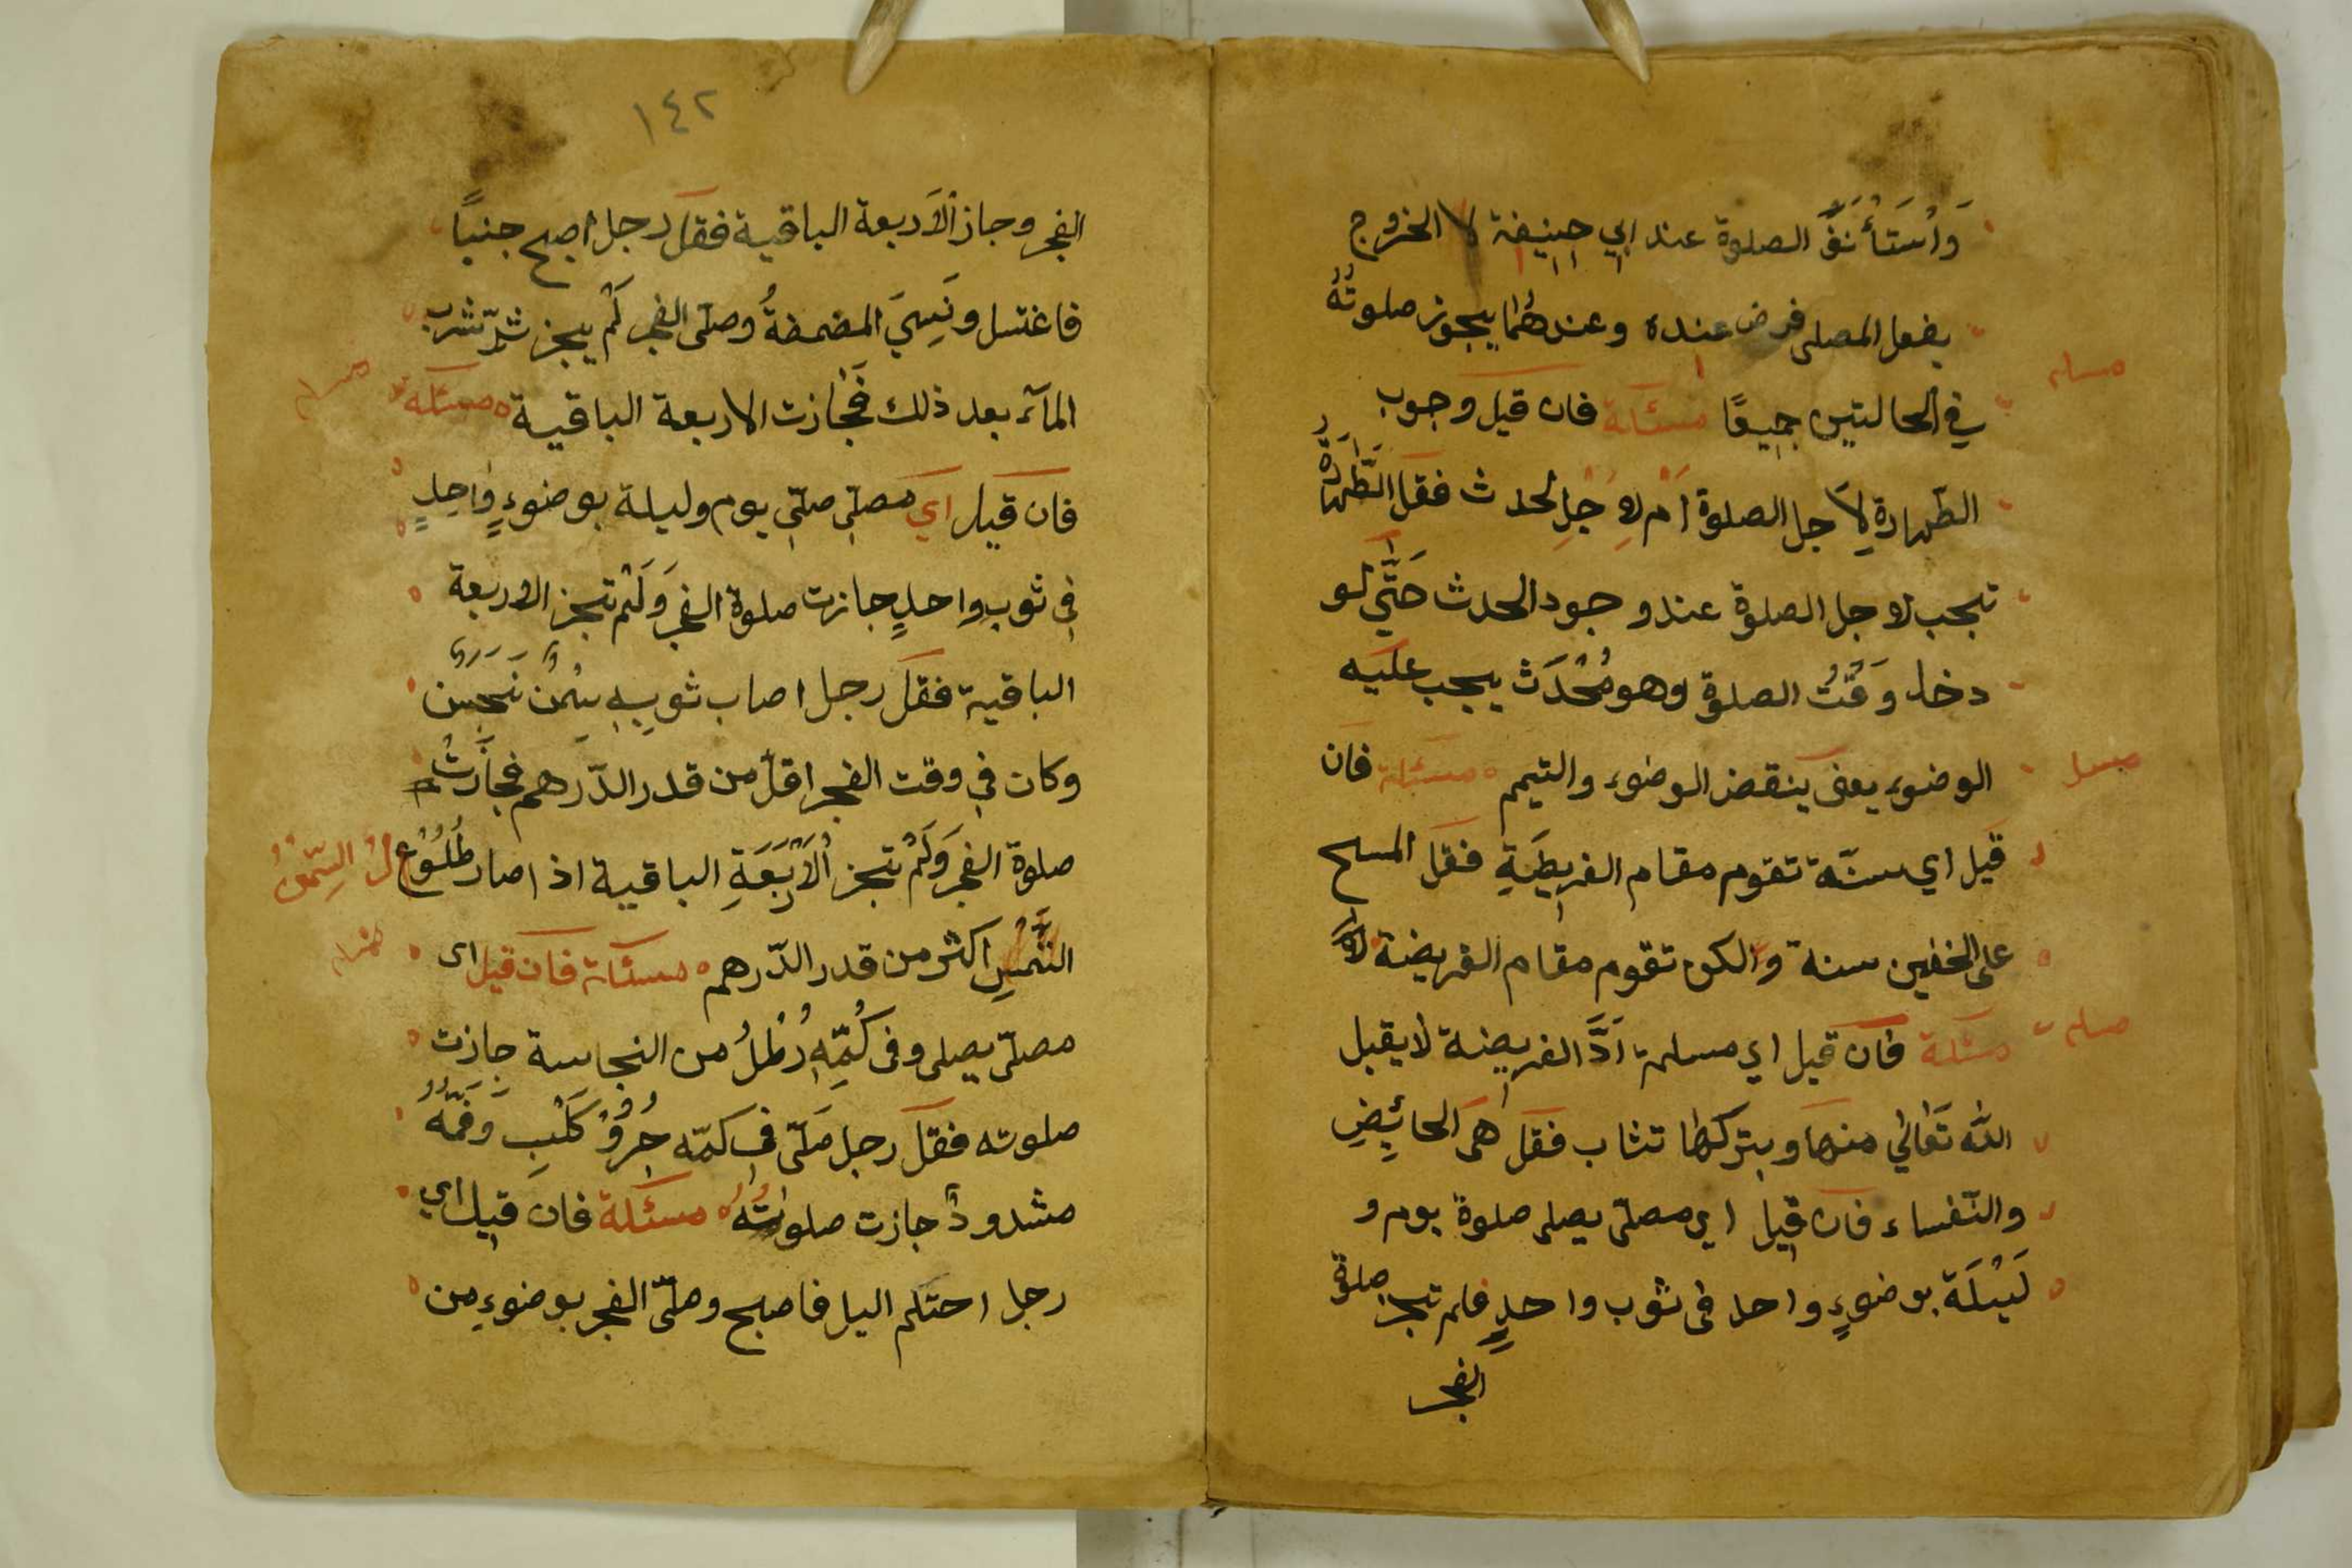 وَاسْتَأْنَفَ الصلوة عند ابي حنيفة لا الخروج
بفعل المصلى فرض عنده وعندهُما يجوز صلوتُهُ
في الحالتين جميعًا مسئلة فان قيل وجوب
مسله
الطّهارة لِاَجل الصلوة اَمْ لِاَجْلِ لحدث فقل الطَّهَارَةُ
تجب لاجل الصلوة عند وجود الحدث حَتَّي لَو
دخل وَقْتُ الصلوة وهو مُحْدَث يجب عليه
الوضوء يعنى ينقض الوضوء والتيمم مسئلة فان
قيل اي سنّة تقوم مقام الفريضَةِ فقل المسح
على الخفين سنة والكن تقوم مقام الفريضة
مسئلة فان قيل اي مسلمة اَدَّ الفريضة لا يقبل
الله تَعَالي منها وبتركها تثاب فقل هى الحائِضِ
والنّفساء فان قيل اي مصلّى يصلى صلوة يوم و
لَيْلَة بوضوءٍ واحد فى ثوب واحدٍ فلم تجز صلوة
الفجر
١٤٢
الفجر وجاز الأربعة الباقية فقل رجل اصبح جنباً
فاغتسل ونَسِيَ المضمضةُ وصلّى الفجر لَمْ يجز ثمّ شرب
المآء بعد ذلك فَجازت الاربعة الباقية مسئلة
فان قيل اي مصلّي صلّي يوم وليلة بوضوءٍ واحِدٍ
في ثوب واحدٍ جازت صلوة الفجر وَلَمْ تجز الاربعة
الباقية فقل رجل اصاب ثوبِهِ سمن نجس
وكان في وقت الفجر اقلّ من قدر الدّرهم فجازَتْ
صلوة الفجر وَلَمْ تجز الْاَرْبَعَةِ الباقية اذ اصار طُلُوْع
الشَّمْسِ اكثر من قدر الدّرهم مسئلة فان قيل اى
مصلّى يصلى وفى كُمِّهِ رُطْلُ من النجاسة جازت
صلوته فقل رجل صَلّى في كمّه جَرْوُ كَلْبٍ وَفَمُّهُ
مشدودٌ جازت صلوتُهُ مسئلة فان قيل اي
رجل احتلم اليل فاصبح وصلّى الفجر بوضوءِ من